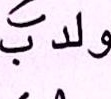 ولد بّ